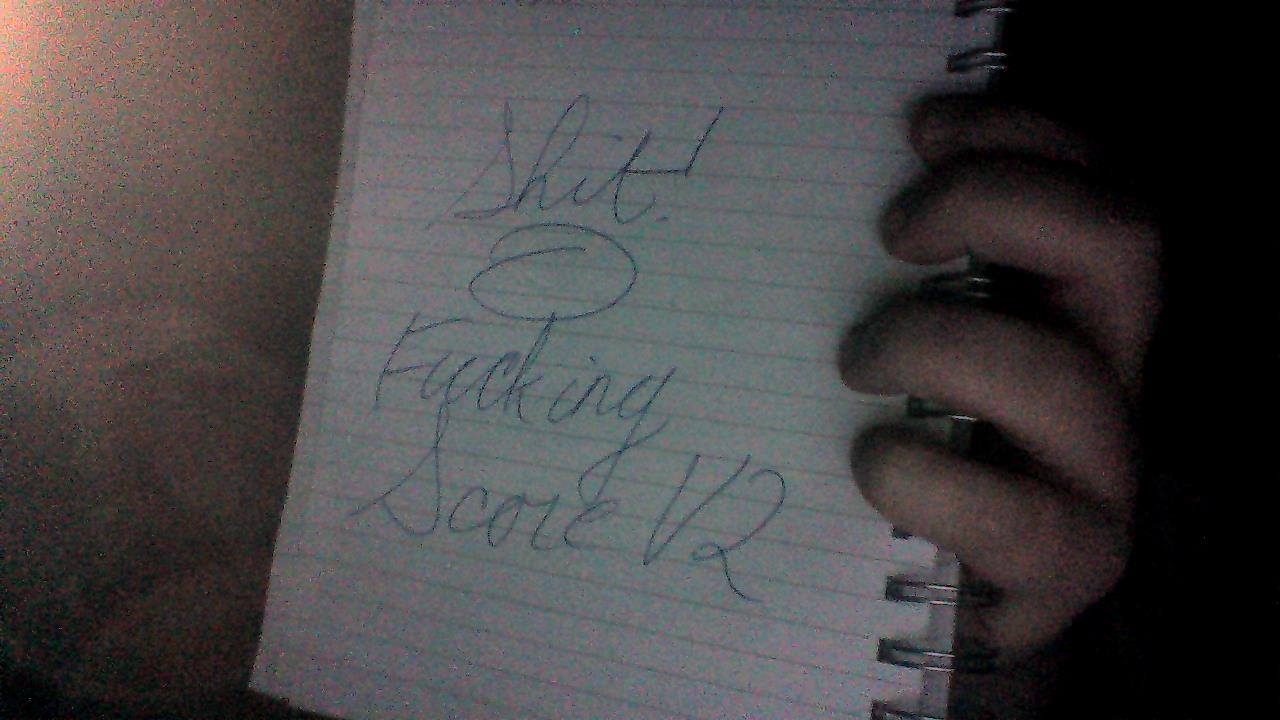 Shit!
Fucking
Score V2